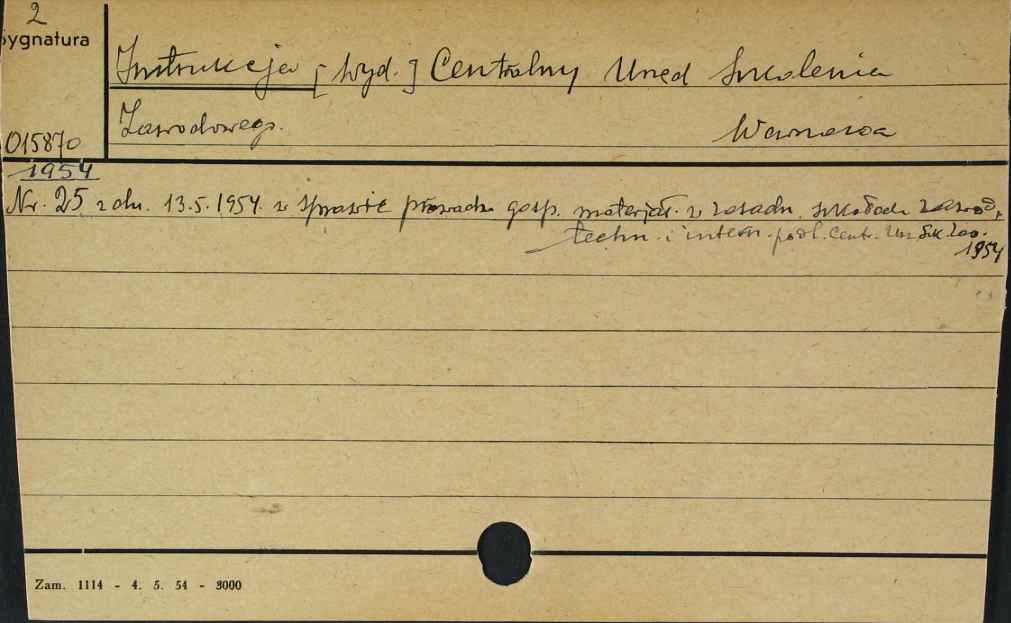 2
Sygnatura
Instrukcja [wyd.] Centralny Urząd Szkolenia
Zawodowego. Warszawa
015870
1954
Nr. 25 z dn. 13.5.1954. w sprawie prowadz. gosp. materjał. w zasadn. szkołach zawod.,
techn. i intern. podl. Centr. Urz. Szk. Zaw.
1954
Zam. 1114 - 4. 5. 54 - 3000